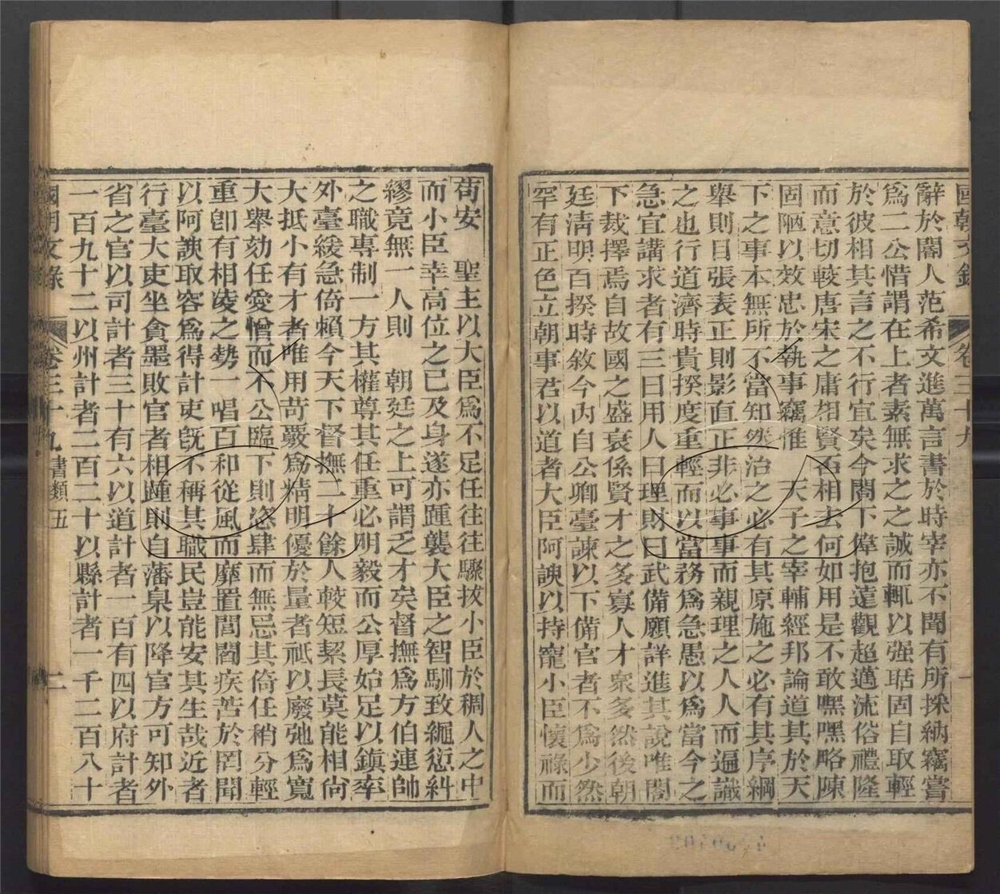 國朝文錄 卷三十九 一
辭於閽人范希文進萬言書於時宰亦不聞有所採納竊嘗
爲二公惜謂在上者素無求之之誠而輒以强聒固自取輕
於彼相其言之不行宜矣今閣下偉抱遠觀超邁流俗禮隆
而意切較唐宋之庸相賢否相去何如用是不敢嘿嘿略陳
固陋以效忠於執事竊惟 天子之宰輔經邦論道其於天
下之事本無所不當知然治之必有其原施之必有其序綱
舉則目張表正則影直正非必事事而親理之人人而遍識
之也行道濟時貴揆度重輕而以當務爲急愚以爲當今之
急宜講求者有三曰用人曰理財曰武備願詳進其說唯閣
下裁擇焉自故國之盛衰係賢才之多寡人才衆多然後朝
廷清明百揆時敘今內自公卿臺諫以下備官者不爲少然
罕有正色立朝事君以道者大臣阿諛以持寵小臣懷祿而
苟安 聖主以大臣爲不足任往往驟拔小臣於稠人之中
而小臣幸高位之已及身遂亦踵襲大臣之智馴致繩愆糾
繆竟無一人則 朝廷之上可謂乏才矣督撫爲方伯連帥
之職專制一方其權尊其任重必明毅而公厚始足以鎮率
外臺緩急倚賴今天下督撫二十餘人較短絜長莫能相尙
大抵小有才者唯用苛嚴爲精明優於量者祇以廢弛爲寬
大舉劾任愛憎而不公臨下則恣肆而無忌其倚任稍分輕
重卽有相陵之勢一唱百和從風而靡置閭閻疾苦於罔聞
以阿諛取容爲得計吏旣不稱其職民豈能安其生哉近者
行臺大吏坐貪墨敗官者相踵則自藩臬以降官方可知外
省之官以司計者三十有六以道計者一百有四以府計者
一百九十二以州計者二百二十以縣計者一千二百八十
國朝文錄 卷三十九 書類五 二